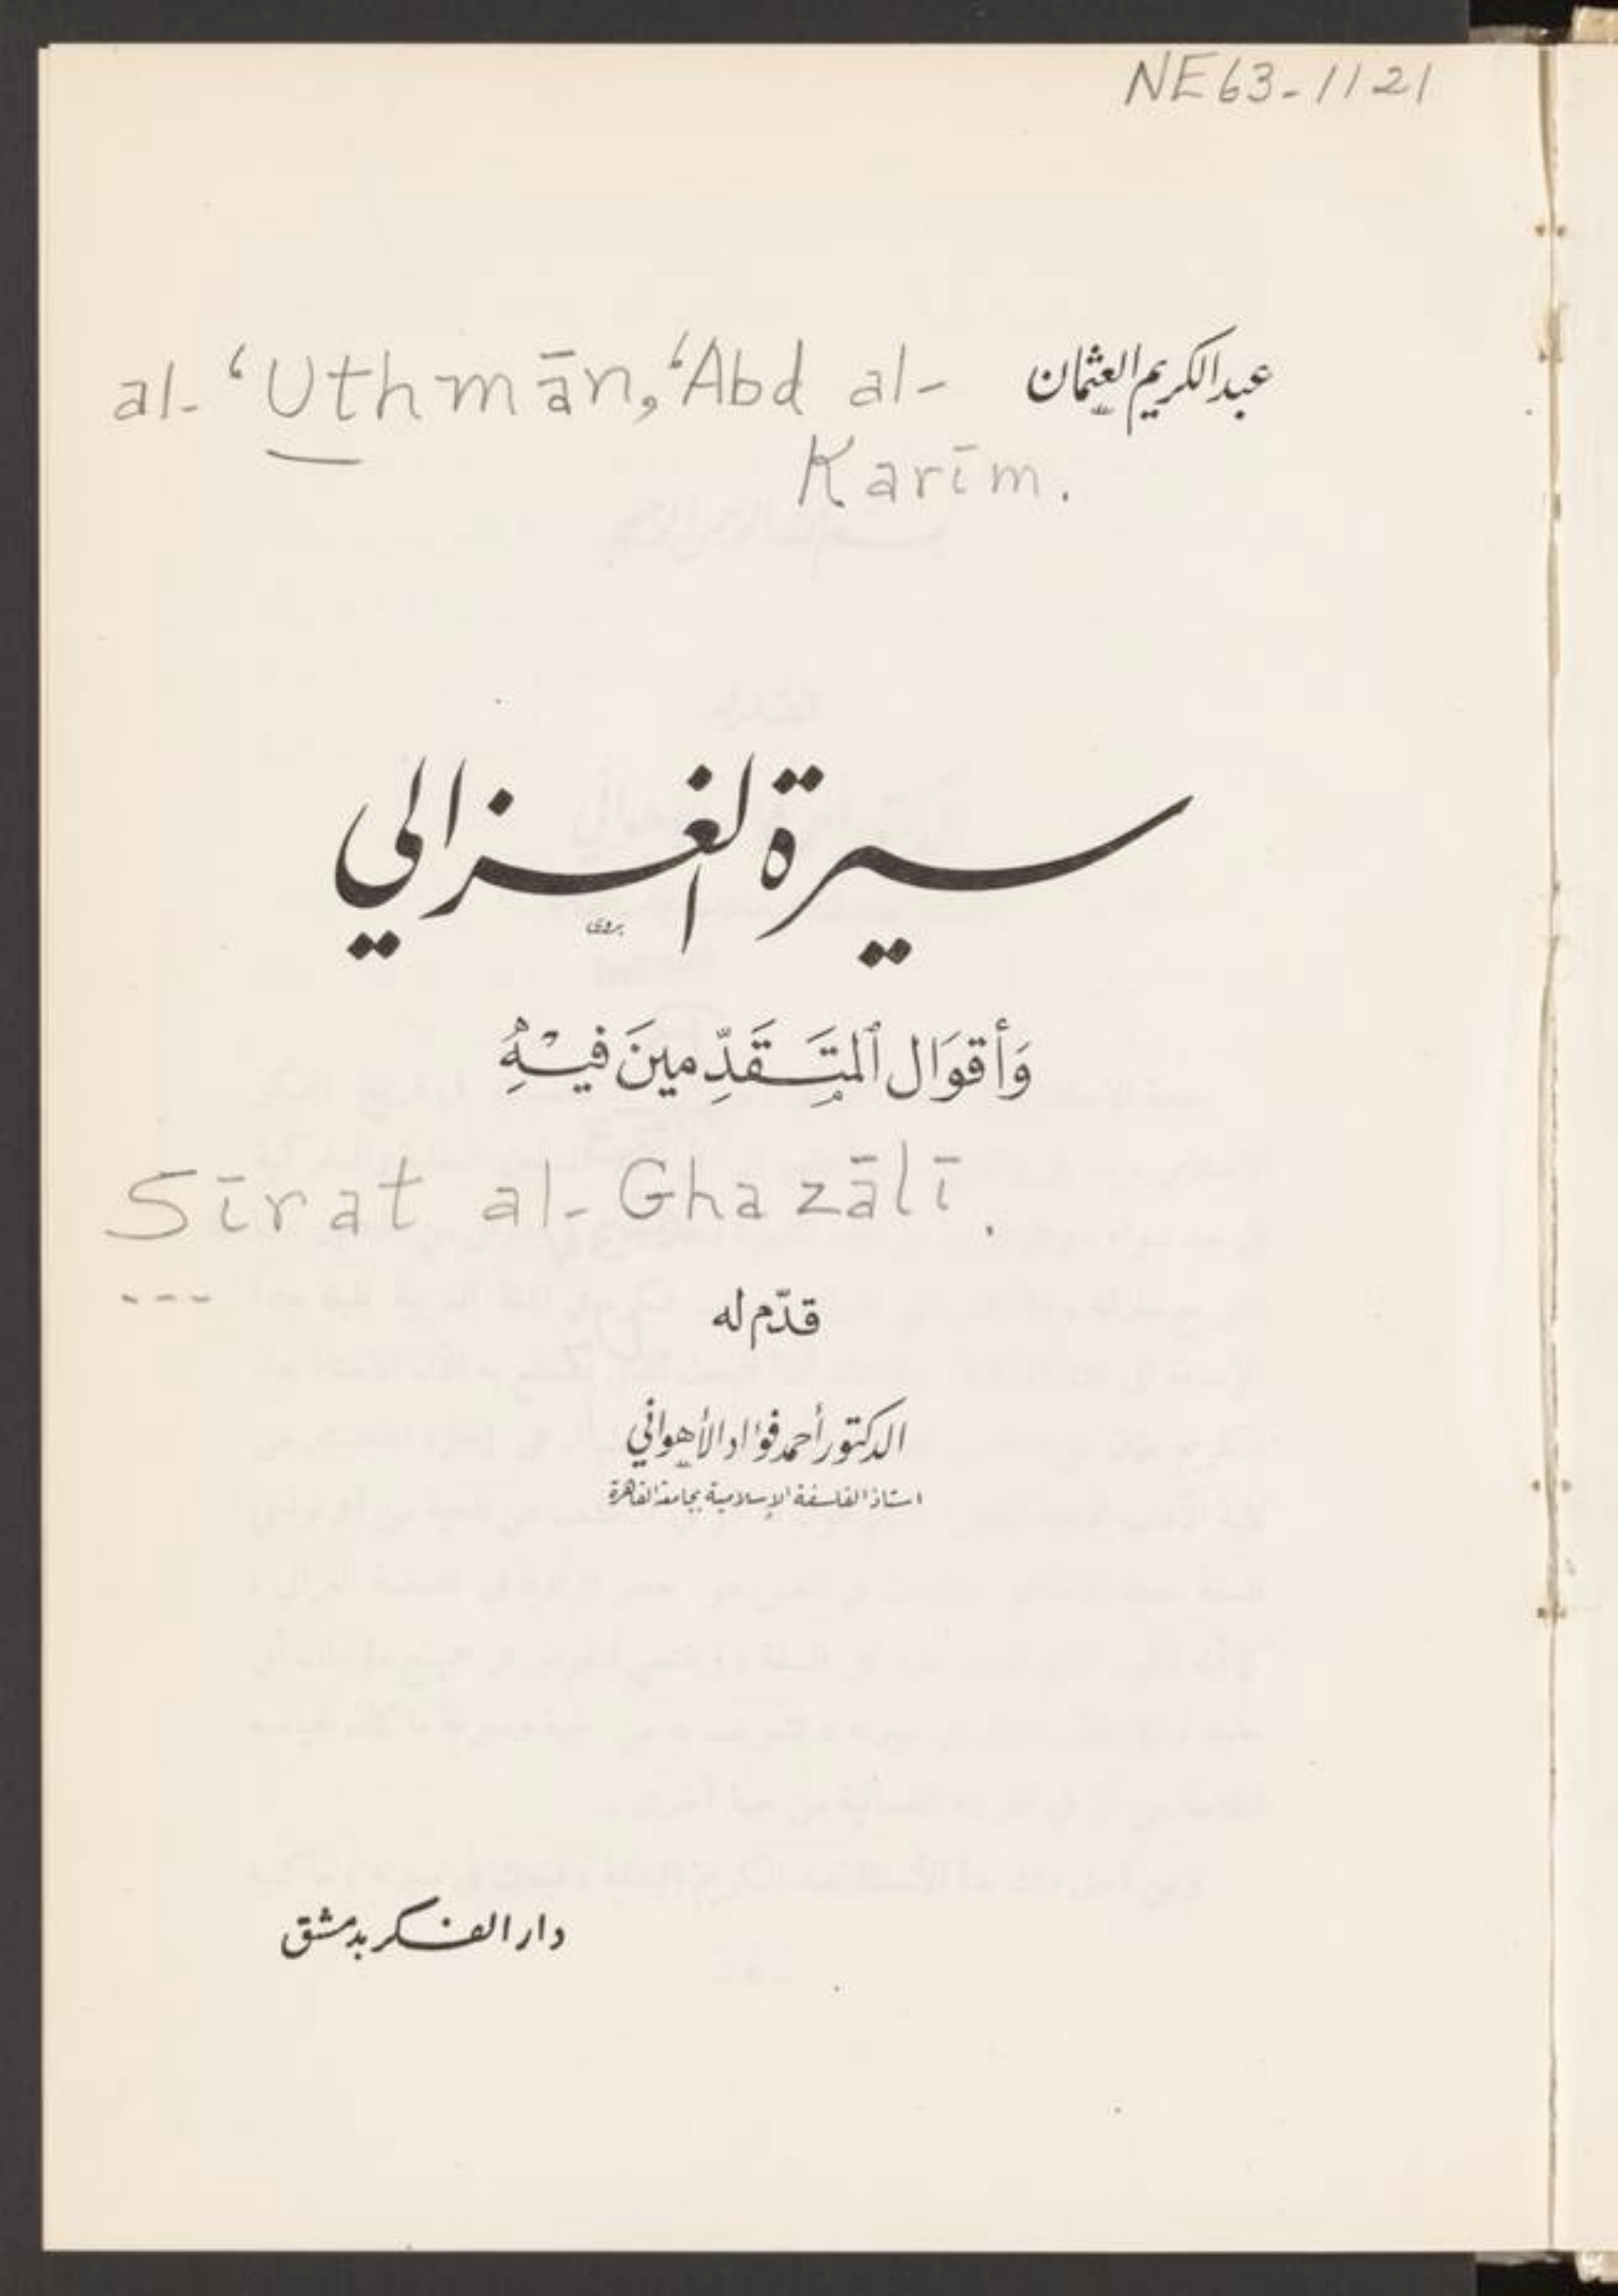 NE63-1121
عبد الكريم العثمان
al-‘Uthmān, ‘Abd al-
Karīm.
سيرة الغزالي
وَأقوَال المتَقَدِّمينَ فيْهِ
Sīrat al-Ghazālī.
---
قدّم له
الدكتور أحمد فؤاد الأهواني
استاذ الفلسفة الإسلامية بجامعة القاهرة
دار الفكر بدمشق